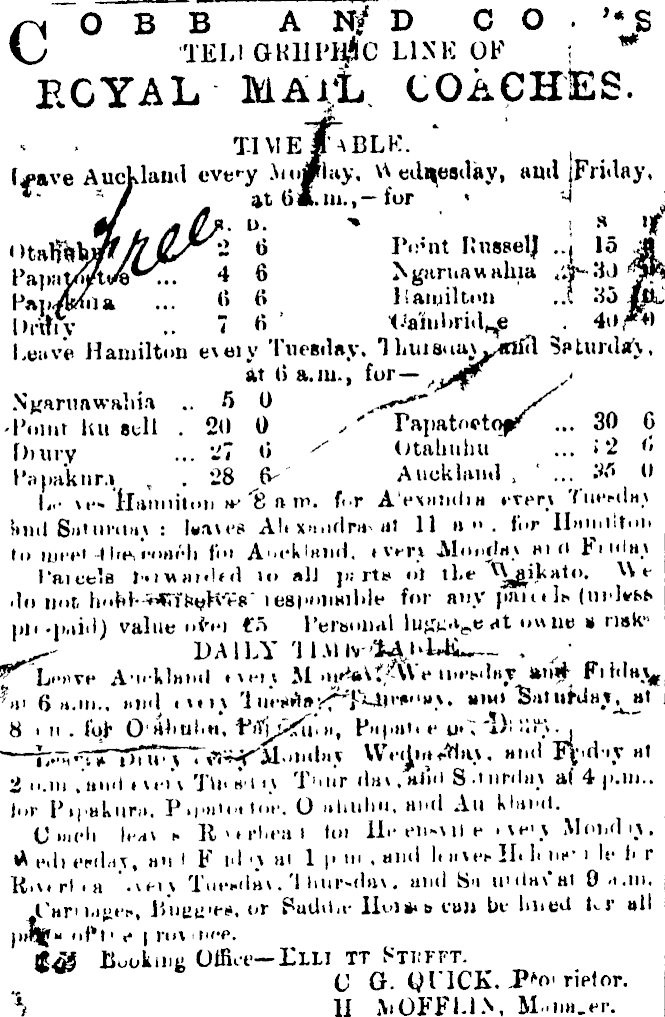 COBB AND CO.'S
TELEGRAPHIC LINE OF
ROYAL MAIL COACHES.
TIME TABLE.
Leave Auckland every Monday, Wednesday, and Friday,
at 6 a.m.,—for
Free
S. D.
Otahuhu 2 6
Papatoetoe ... 4 6
Papakura ... 6 6
Drury .. 7 6
S D
Point Russell .. 15 0
Ngaruawahia .. 30 0
Hamilton .. 35 0
Cambridge . 40 0
Leave Hamilton every Tuesday, Thursday, and Saturday,
at 6 a.m., for—
Ngaruawahia .. 5 0
Point Russell . 20 0
Drury ... 27 6
Papakura . 28 6
Papatoetoe ... 30 6
Otahuhu ... 32 6
Auckland ... 35 0
Leaves Hamilton at 8 a.m. for Alexandra every Tuesday
and Saturday; leaves Alexandra at 11 a.m. for Hamilton
to meet the coach for Auckland, every Monday and Friday
Parcels forwarded to all parts of the Waikato. We
do not hold ourselves responsible for any parcels (unless
pre-paid) value over £5 Personal luggage at owner's risk
DAILY TIME TABLE.
Leave Auckland every Monday, Wednesday and Friday,
at 6 a.m., and every Tuesday, Thursday, and Saturday, at
8 a.m. for Otahuhu, Papakura, Papatoetoe, Drury.
Leaves Drury every Monday Wednesday, and Friday at
2 p.m., and every Tuesday Thursday, and Saturday at 4 p.m.,
for Papakura, Papatoetoe, Otahuhu, and Auckland.
Coach leaves Riverhead for Helensville every Monday,
Wednesday, and Friday at 1 p.m., and leaves Helensville for
Riverhead every Tuesday, Thursday, and Saturday at 9 a.m.
Carriages, Buggies, or Saddle Horses can be hired for all
parts of the province.
Booking Office—ELLIOTT STREET.
C. G. QUICK, Proprietor.
H MOFFLIN, Manager.